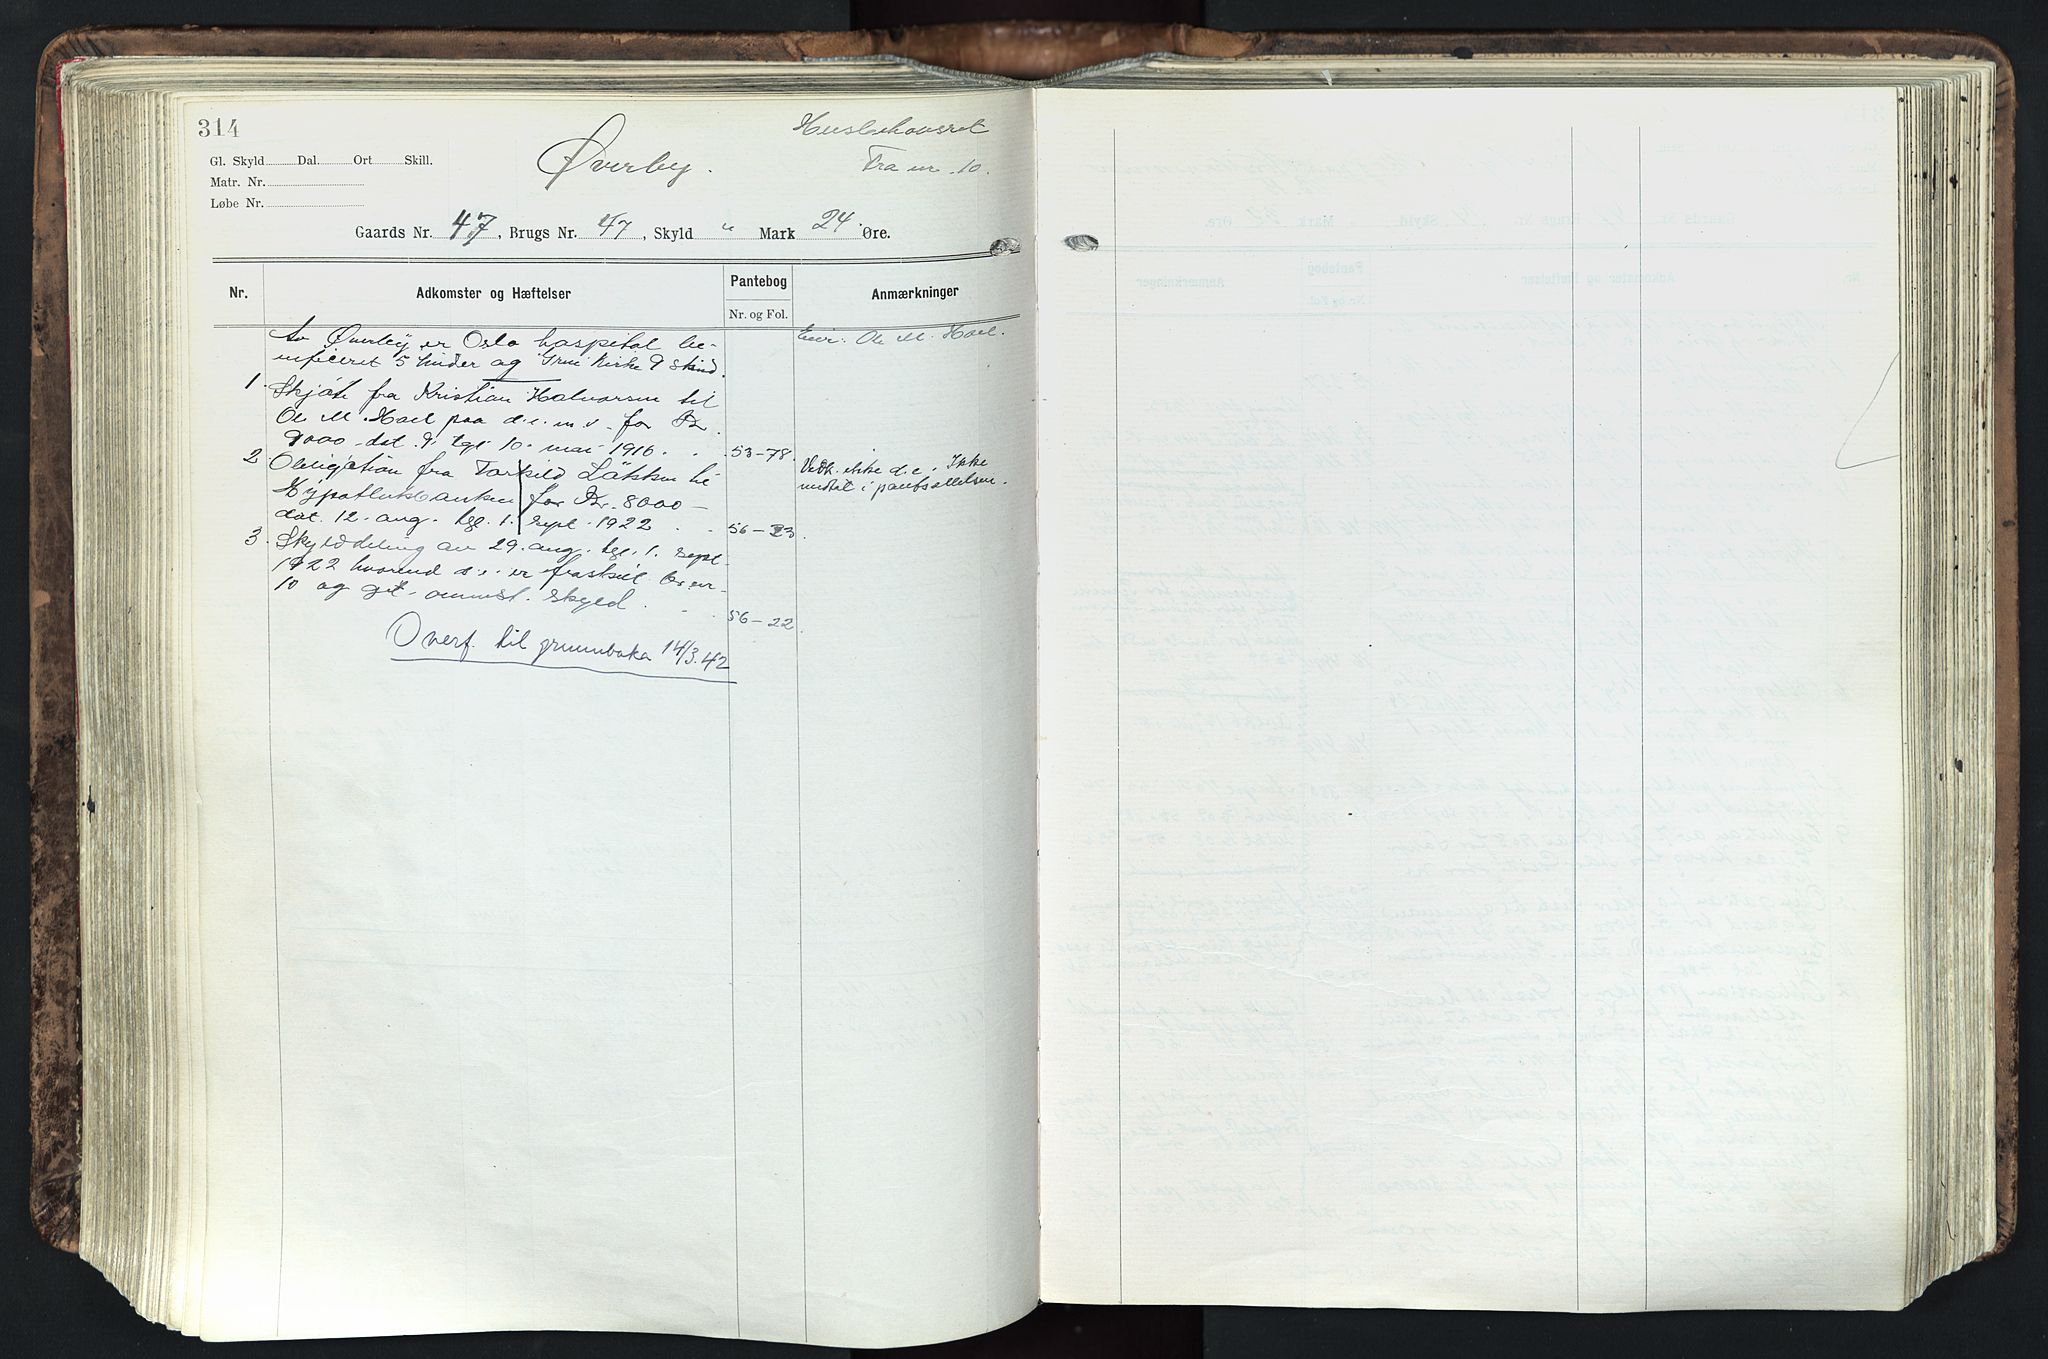 314
Husbehovsret
Gl. Skyld Dal. Ort Skill.
Øverby.
Fra nr. 10.
Matr. Nr.
Løbe Nr.
Gaards Nr. 47, Brugs Nr. 47, Skyld " Mark 24 Øre.
Nr. Adkomster og Hæftelser Pantebog Anmærkninger
Nr. og Fol.
Av Øverby er Oslo hospital be-
Eier: Ole M. Hoel.
nificeret 5 huder og Grue Kirke 9 skind.
1. Skjøte fra Kristian Halvorsen til
Ole M. Hoel paa d. e. m. v. for Kr.
9000 - dat. 9. tgl. 10. mai 1916 . . 53-78.
2. Obligation fra Torkild til
Hypotekbanken for Kr. 8000 -
dat. 12. aug. tgl. 1. sept. 1922 . . 56-23.
Vedk. ikke d. e. Ikke
undtat i pantsættelsen.
3. Skylddeling av 29. aug. tgl. 1. sept.
1922 hvorved d. e. er fraskilt br. nr.
10 og git ommst. skyld . . 56-22.
Overf. til grunnboka 14/3.42